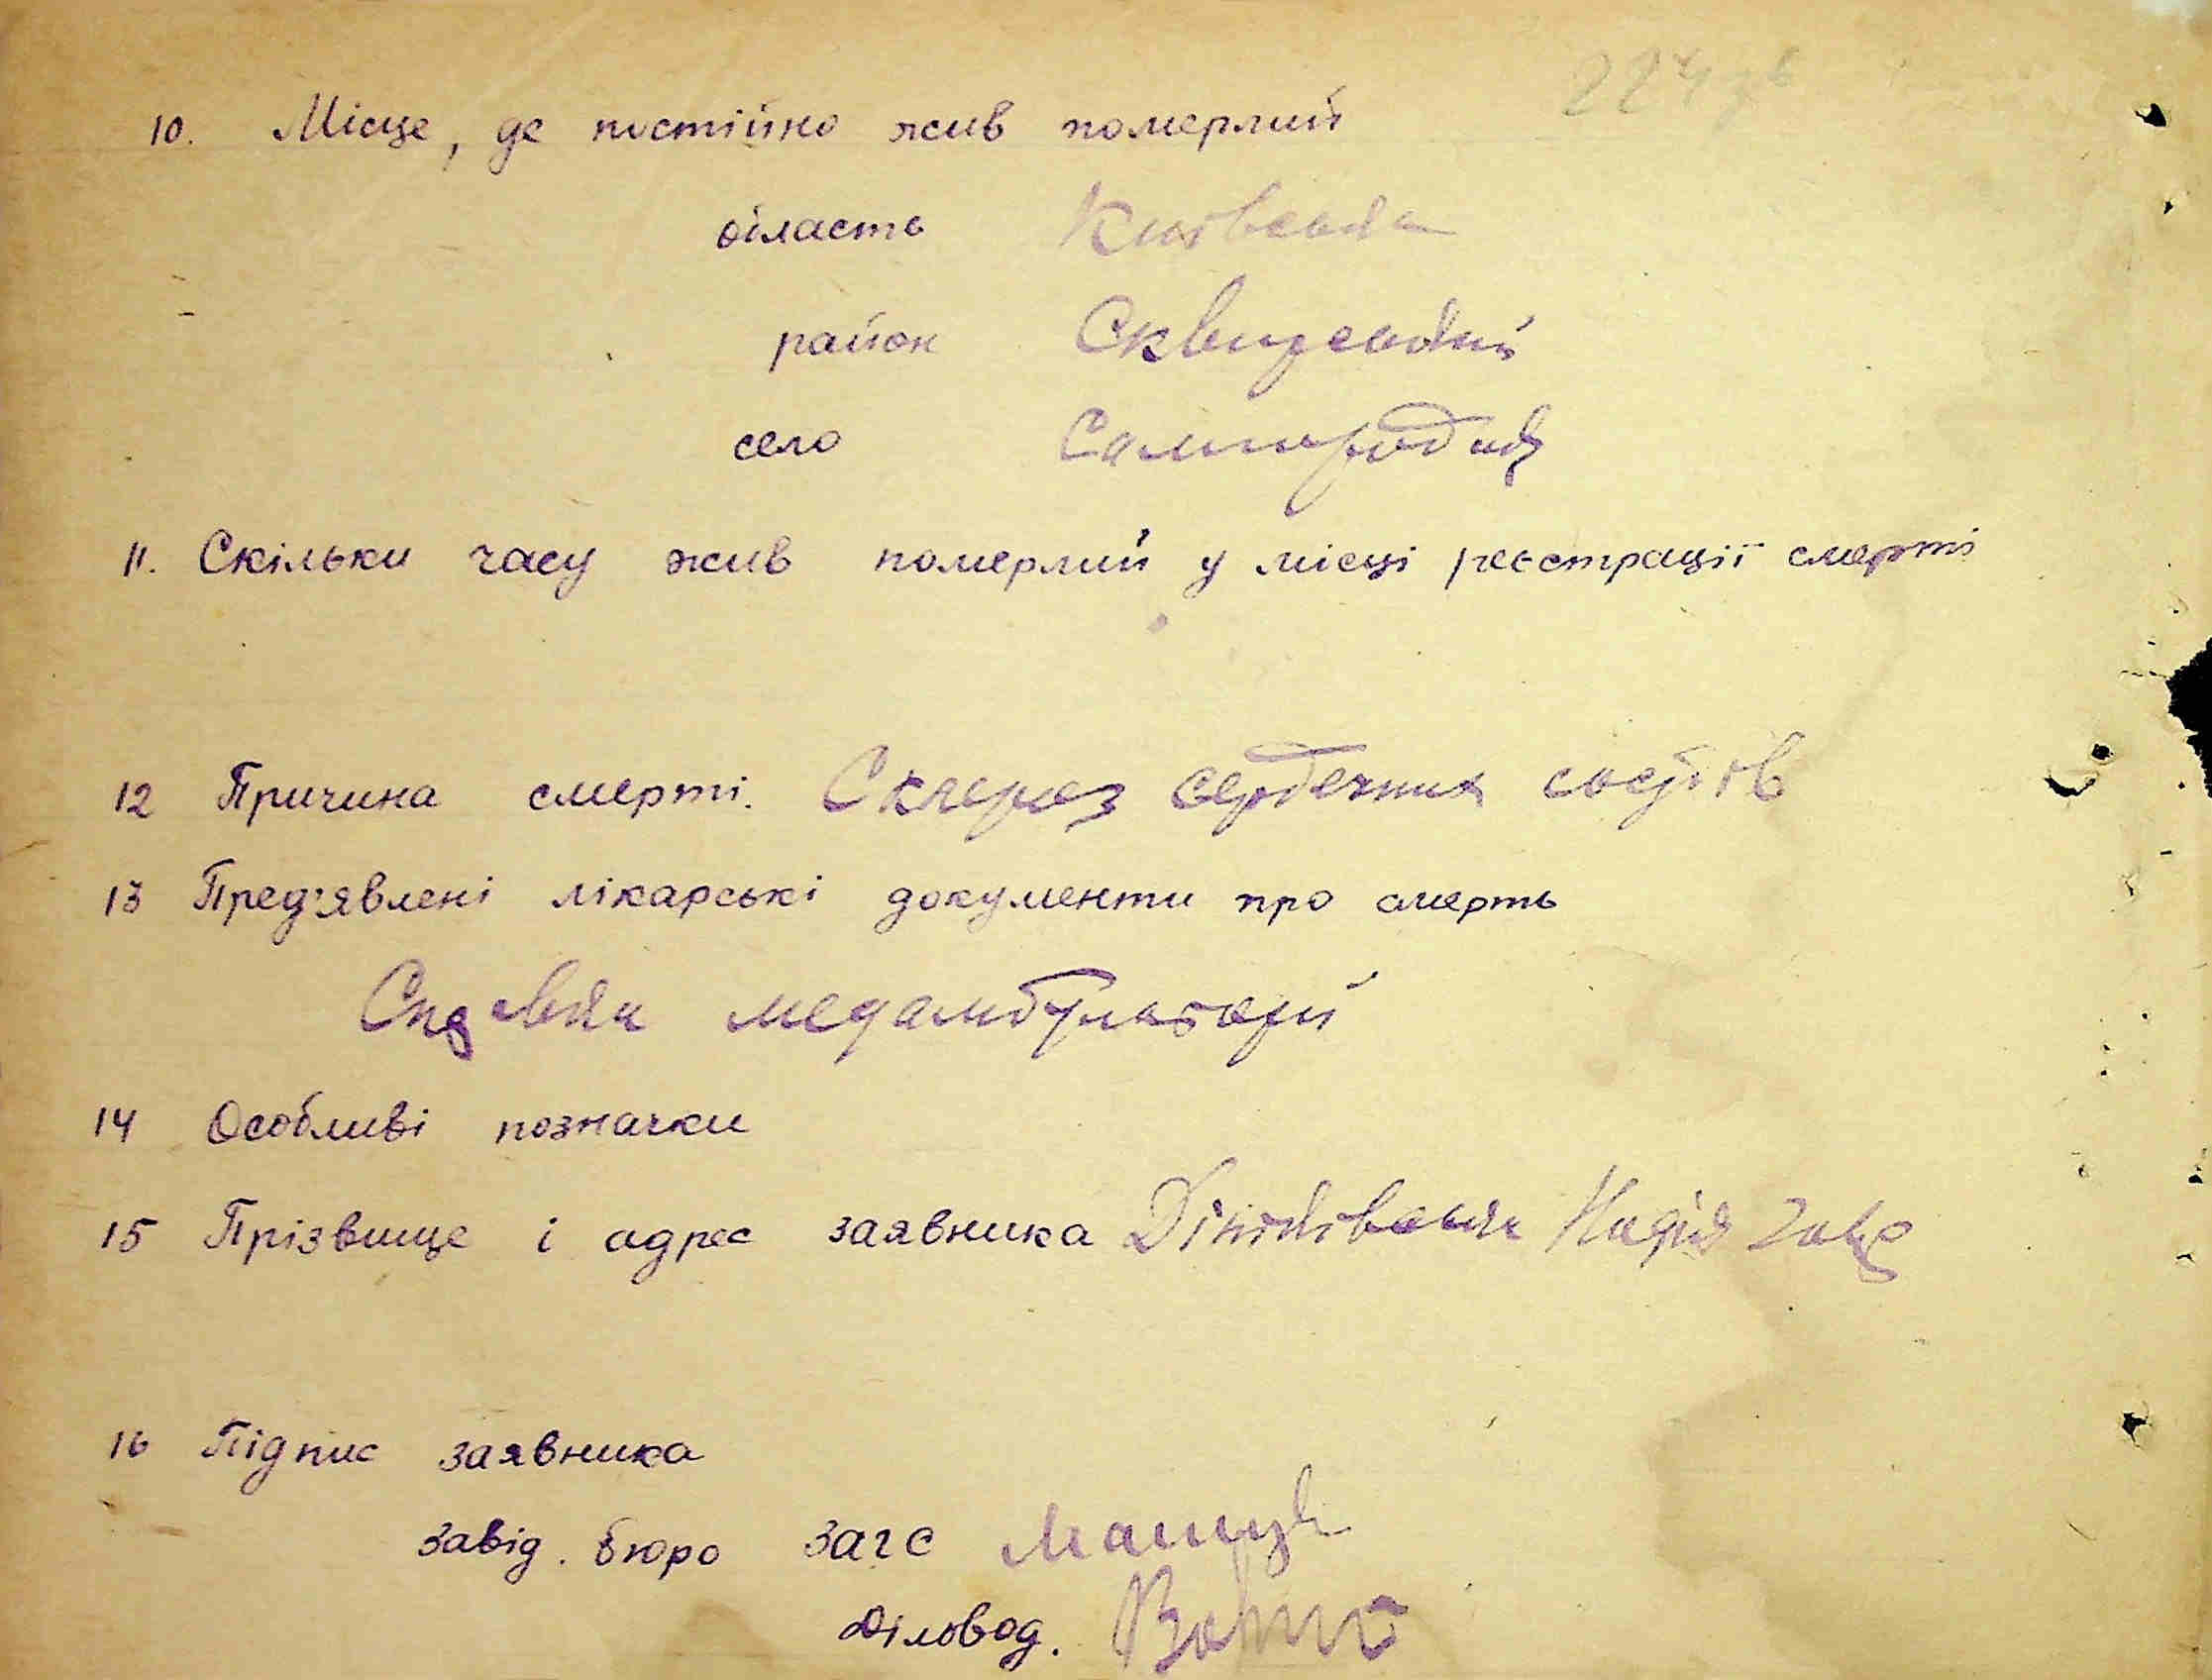 224зв
10. Місце, де постійно жив померлий
область Київська
район Сквирський
село Самгородок
11. Скільки часу жив померлий у місці реєстрації смерті
12 Причина смерті. Склероз сердечних
13 Пред'явлені лікарські документи про смерть
медамбулаторії
14 Особливі позначки
15 Прізвище і адрес заявника Надія
16 Підпис заявника
Завід. бюро загс
Діловод.